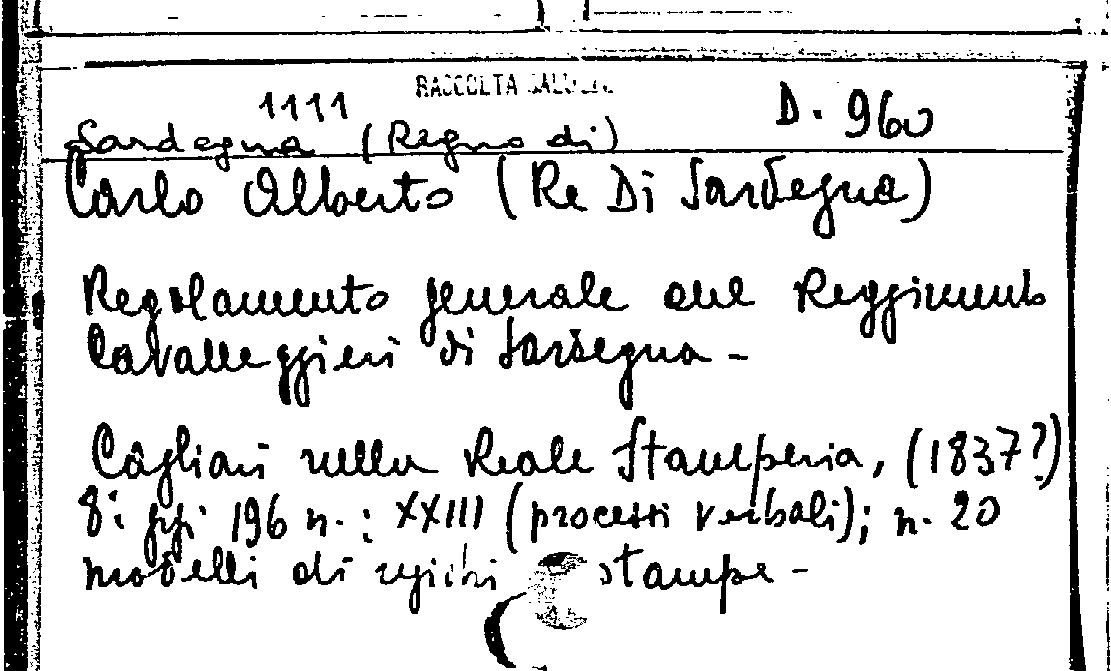 RACCOLTA
1111 D. 960
Sardegna (Regno di)
Carlo Alberto (Re Di Sardegna)
Regolamento generale del Reggimento
Cavalleggieri di Sardegna -
Cagliari nella Reale Stamperia, (1837?)
8: pp: 196 n.: XXIII (processi verbali); n. 20
modelli di stampe -